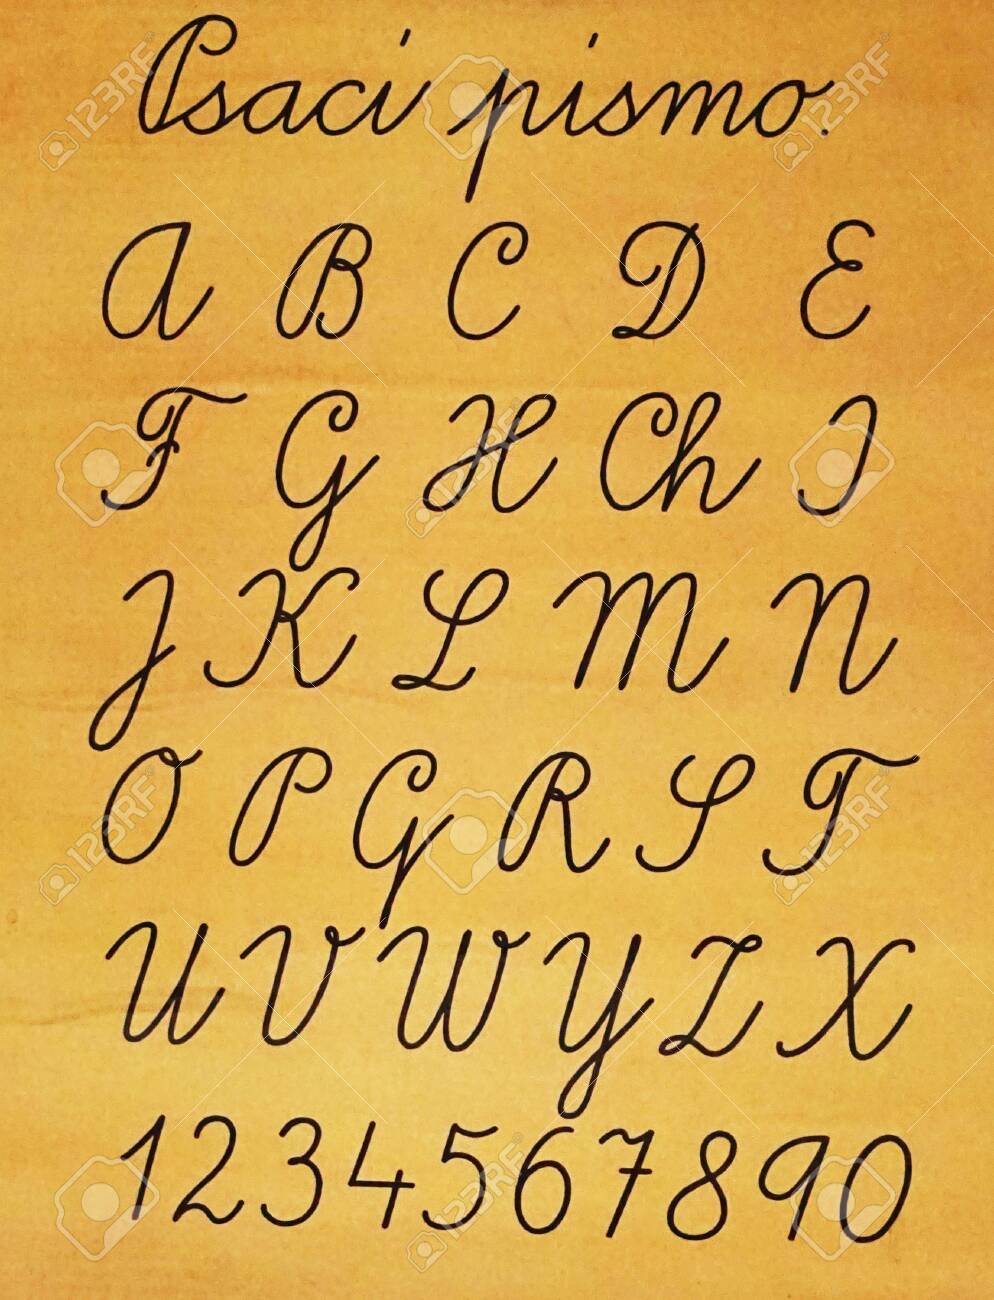 Psací písmo.
A B C D E
F G H Ch I
J K L M N
O P Q R S T
U V W Y Z X
1 2 3 4 5 6 7 8 9 0
123RF